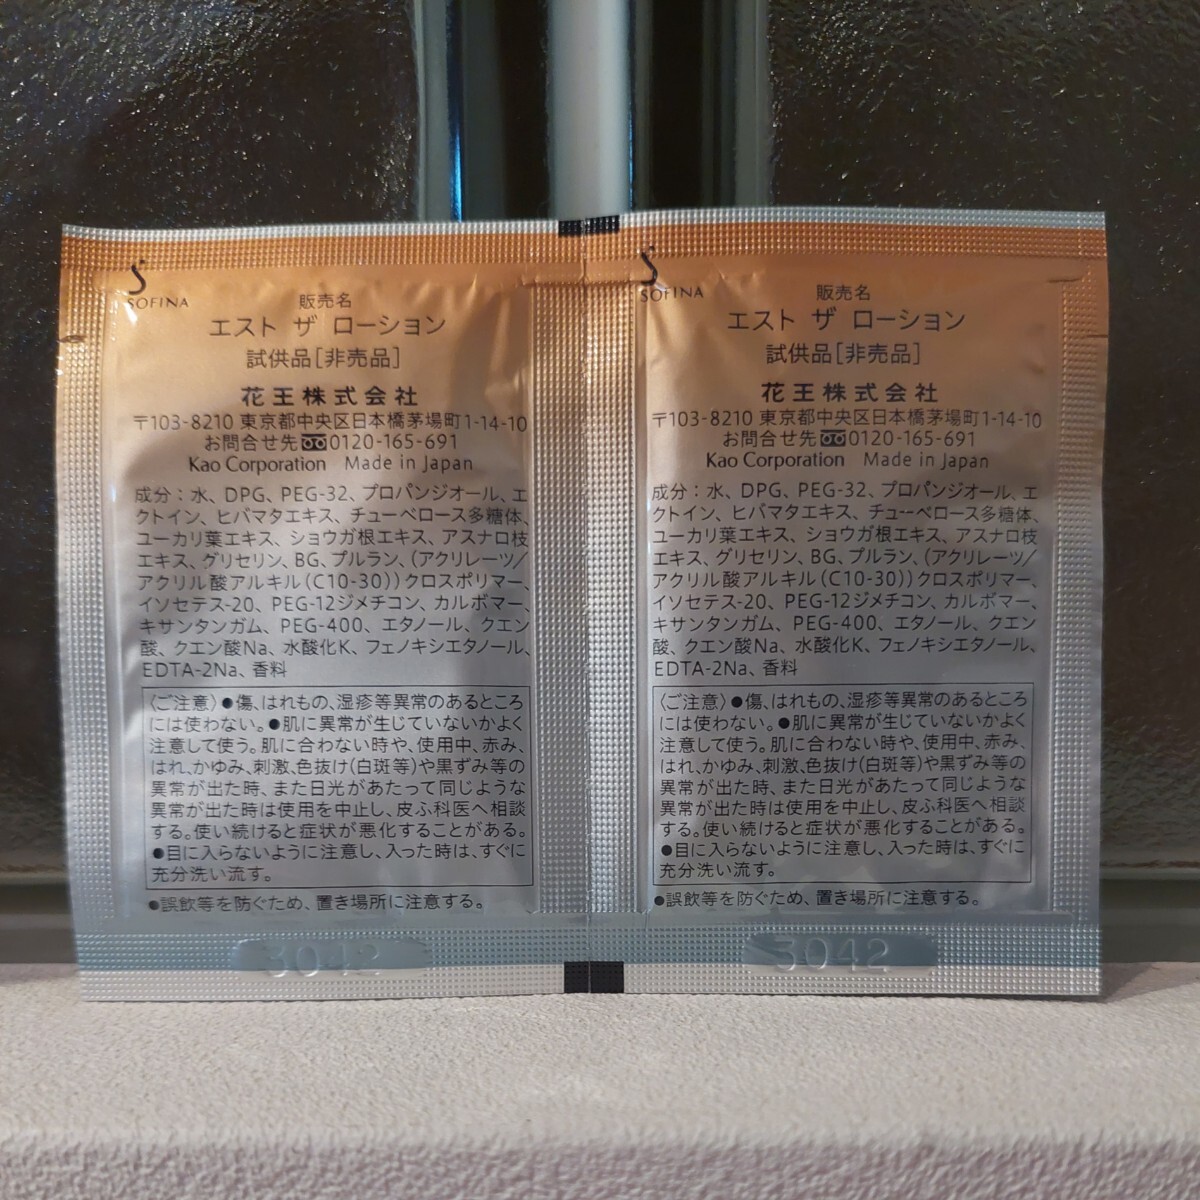 SOFINA
販売名
エスト ザ ローション
試供品[非売品]
花王株式会社
〒103-8210 東京都中央区日本橋茅場町1-14-10
お問合せ先 0120-165-691
Kao Corporation Made in Japan
成分：水、DPG、PEG-32、プロパンジオール、エ
クトイン、ヒバマタエキス、チューベロース多糖体、
ユーカリ葉エキス、ショウガ根エキス、アスナロ枝
エキス、グリセリン、BG、プルラン、(アクリレーツ/
アクリル酸アルキル(C10-30))クロスポリマー、
イソセテス-20、PEG-12ジメチコン、カルボマー、
キサンタンガム、PEG-400、エタノール、クエン
酸、クエン酸Na、水酸化K、フェノキシエタノール、
EDTA-2Na、香料
〈ご注意〉●傷、はれもの、湿疹等異常のあるところ
には使わない。●肌に異常が生じていないかよく
注意して使う。肌に合わない時や、使用中、赤み、
はれ、かゆみ、刺激、色抜け(白斑等)や黒ずみ等の
異常が出た時、また日光があたって同じような
異常が出た時は使用を中止し、皮ふ科医へ相談
する。使い続けると症状が悪化することがある。
●目に入らないように注意し、入った時は、すぐに
充分洗い流す。
●誤飲等を防ぐため、置き場所に注意する。
3042
SOFINA
販売名
エスト ザ ローション
試供品[非売品]
花王株式会社
〒103-8210 東京都中央区日本橋茅場町1-14-10
お問合せ先 0120-165-691
Kao Corporation Made in Japan
成分：水、DPG、PEG-32、プロパンジオール、エ
クトイン、ヒバマタエキス、チューベロース多糖体、
ユーカリ葉エキス、ショウガ根エキス、アスナロ枝
エキス、グリセリン、BG、プルラン、(アクリレーツ/
アクリル酸アルキル(C10-30))クロスポリマー、
イソセテス-20、PEG-12ジメチコン、カルボマー、
キサンタンガム、PEG-400、エタノール、クエン
酸、クエン酸Na、水酸化K、フェノキシエタノール、
EDTA-2Na、香料
〈ご注意〉●傷、はれもの、湿疹等異常のあるところ
には使わない。●肌に異常が生じていないかよく
注意して使う。肌に合わない時や、使用中、赤み、
はれ、かゆみ、刺激、色抜け(白斑等)や黒ずみ等の
異常が出た時、また日光があたって同じような
異常が出た時は使用を中止し、皮ふ科医へ相談
する。使い続けると症状が悪化することがある。
●目に入らないように注意し、入った時は、すぐに
充分洗い流す。
●誤飲等を防ぐため、置き場所に注意する。
3042